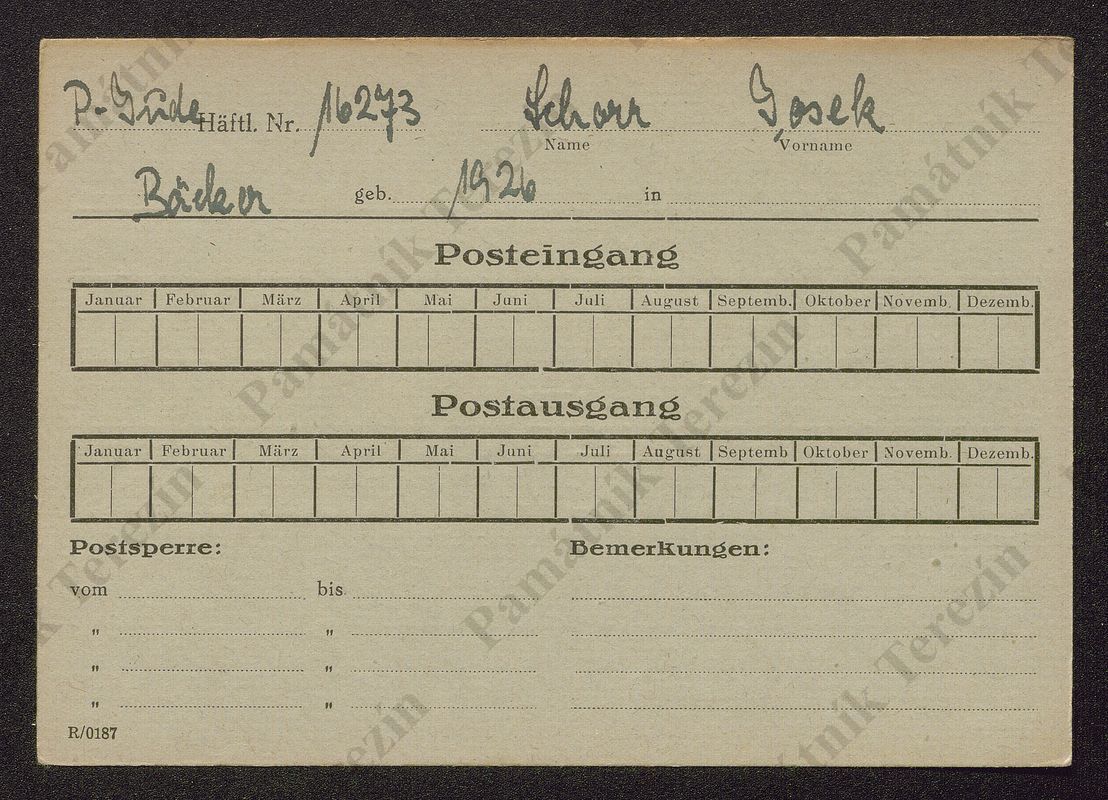 P-Jude Häftl. Nr. 16273 Schorr Josek
Name Vorname
Bäcker geb. 1926 in
Posteingang
Januar Februar März April Mai Juni Juli August Septemb. Oktober Novemb. Dezemb.
Postausgang
Januar Februar März April Mai Juni Juli August Septemb Oktober Novemb. Dezemb.
Postsperre: Bemerkungen:
vom bis
" "
" "
" "
R/0187
Památník Terezín